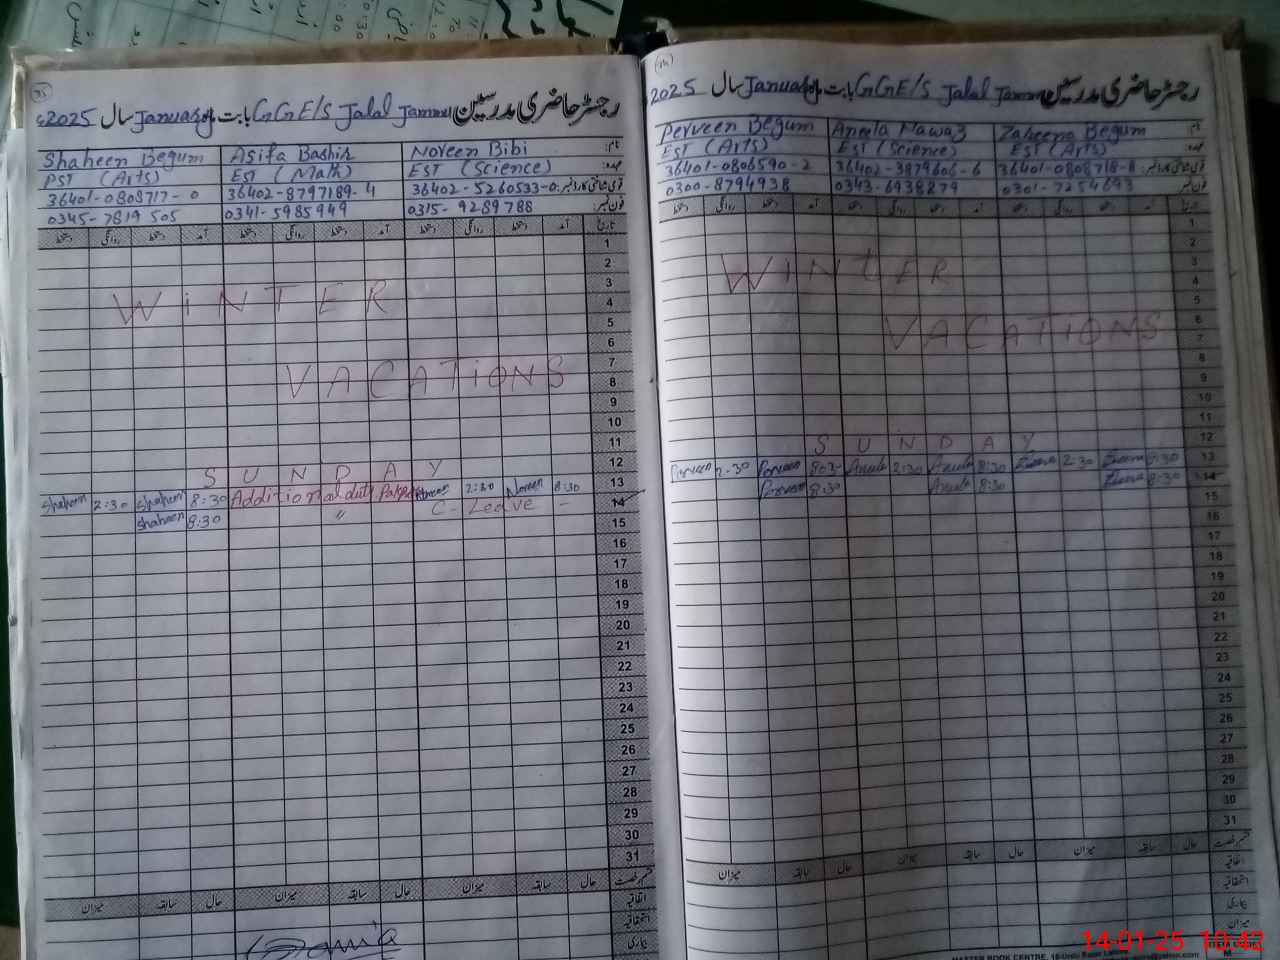 رجسٹر حاضری مدرسین GGE/S Jalal Jammu بابت January سال 2025
Shaheen Begum Asifa Bashir Noreen Bibi
PST (Arts) EST (Math) EST (Science)
36401-0808717-0 36402-8797189-4 36402-5260533-0
0345-7819505 0341-5985949 0315-9289788
تاریخ آمد دستخط روانگی دستخط آمد دستخط روانگی دستخط آمد دستخط روانگی دستخط
1
2
3
WiNTER
4
5
6
7
VACATiONS
8
9
10
11
12
SUNDAY
13
Shaheen 2:30 Shaheen 8:30 Additional duty Noreen 2:30 Noreen 8:30
14
Shaheen 8:30 " C-Leave -
15
16
17
18
19
20
21
22
23
24
25
26
27
28
29
30
31
حال سابقہ میزان حال سابقہ میزان حال سابقہ میزان
اتفاقیہ
استحقاقیہ
بیماری
رجسٹر حاضری مدرسین GGE/S Jalal Jammu بابت January سال 2025
نام:
Perveen Begum Aneela Nawaz Zaheena Begum
عہدہ:
EST (Arts) EST (Science) EST (Arts)
قومی شناختی کارڈ نمبر:
36401-0806590-2 36402-3879606-6 36401-0808718-8
فون نمبر:
0300-8794938 0343-6938879 0301-7254693
تاریخ آمد دستخط روانگی دستخط آمد دستخط روانگی دستخط آمد دستخط روانگی دستخط
1
2
3
WiNtER
4
5
6
VACATiONS
7
8
9
10
11
12
SUNDAY
13
Perveen 2:30 Perveen 8:30 Aneela 2:30 Aneela 8:30 2:30 8:30
14
Perveen 8:30 Aneela 8:30 8:30
15
16
17
18
19
20
21
22
23
24
25
26
27
28
29
30
31
حال سابقہ میزان حال سابقہ میزان حال سابقہ میزان
اتفاقیہ
استحقاقیہ
بیماری
میزان
14-01-25 10:42
MASTER BOOK CENTRE, 16-Urdu Bazar Lahore